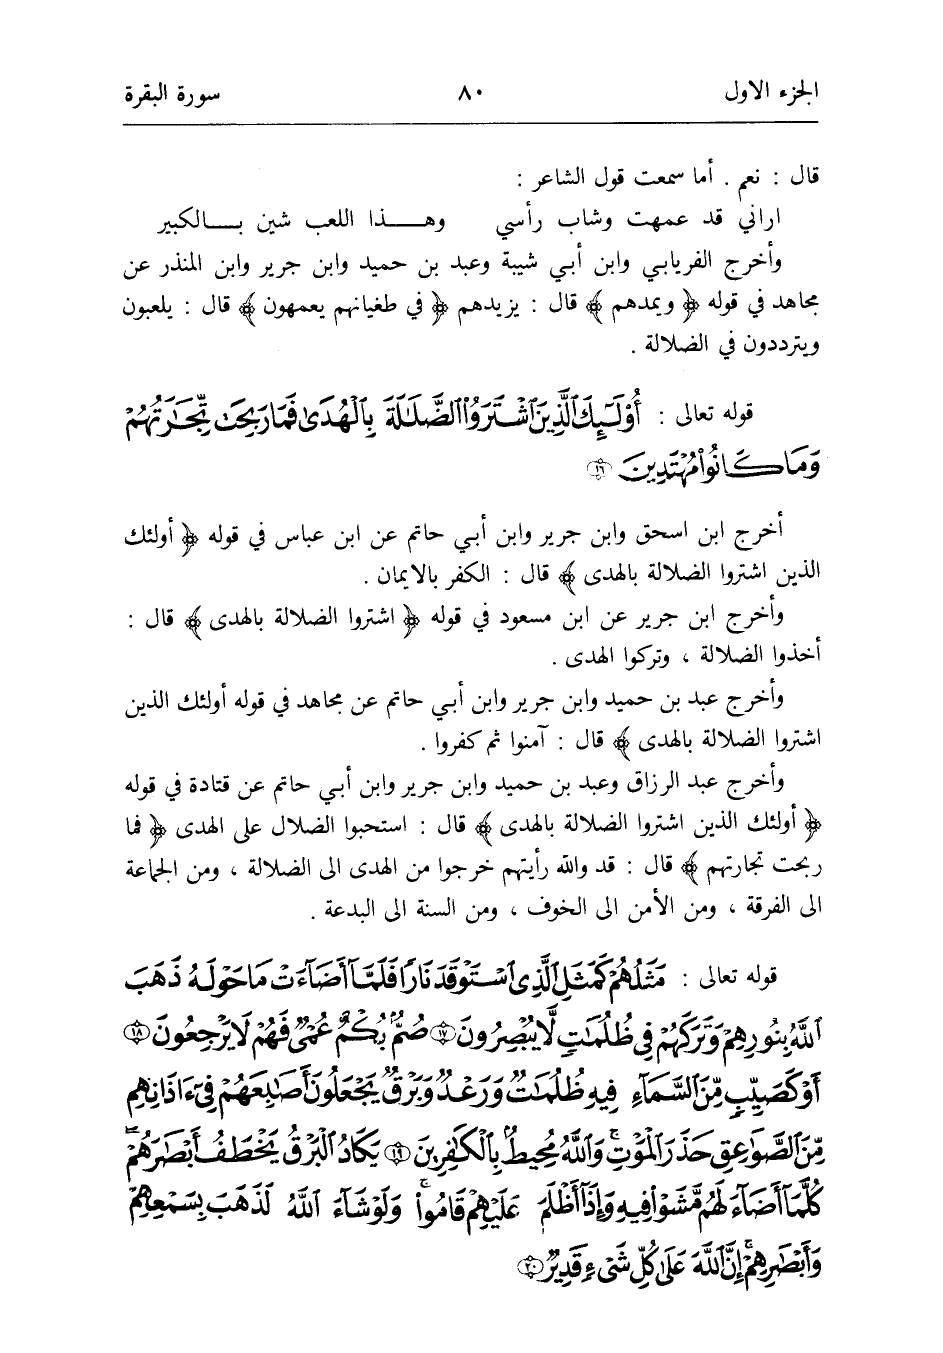 الجزء الاول ٨٠ سورة البقرة
قال : نعم . أما سمعت قول الشاعر :
اراني قد عمهت وشاب رأسي وهـــذا اللعب شين بــالكبير
وأخرج الفريابي وابن أبي شيبة وعبد بن حميد وابن جرير وابن المنذر عن
مجاهد في قوله ﴿ ويمدهم ﴾ قال : يزيدهم ﴿ في طغيانهم يعمهون ﴾ قال : يلعبون
ويترددون في الضلالة .
قوله تعالى : أُوْلَـٰٓئِكَ ٱلَّذِينَ ٱشْتَرَوُاْ ٱلضَّلَـٰلَةَ بِٱلْهُدَىٰ فَمَا رَبِحَت تِّجَـٰرَتُهُمْ
وَمَا كَانُواْ مُهْتَدِينَ ١٦
أخرج ابن اسحق وابن جرير وابن أبي حاتم عن ابن عباس في قوله ﴿ أولئك
الذين اشتروا الضلالة بالهدى ﴾ قال : الكفر بالايمان .
وأخرج ابن جرير عن ابن مسعود في قوله ﴿ اشتروا الضلالة بالهدى ﴾ قال :
أخذوا الضلالة ، وتركوا الهدى .
وأخرج عبد بن حميد وابن جرير وابن أبي حاتم عن مجاهد في قوله أولئك الذين
اشتروا الضلالة بالهدى ﴾ قال : آمنوا ثم كفروا .
وأخرج عبد الرزاق وعبد بن حميد وابن جرير وابن أبي حاتم عن قتادة في قوله
﴿ أولئك الذين اشتروا الضلالة بالهدى ﴾ قال : استحبوا الضلال على الهدى ﴿ فما
ربحت تجارتهم ﴾ قال : قد والله رأيتهم خرجوا من الهدى الى الضلالة ، ومن الجماعة
الى الفرقة ، ومن الأمن الى الخوف ، ومن السنة الى البدعة .
قوله تعالى : مَثَلُهُمْ كَمَثَلِ ٱلَّذِى ٱسْتَوْقَدَ نَارًا فَلَمَّآ أَضَآءَتْ مَا حَوْلَهُۥ ذَهَبَ
ٱللَّهُ بِنُورِهِمْ وَتَرَكَهُمْ فِى ظُلُمَـٰتٍ لَّا يُبْصِرُونَ ١٧ صُمٌّۢ بُكْمٌ عُمْىٌ فَهُمْ لَا يَرْجِعُونَ ١٨
أَوْ كَصَيِّبٍ مِّنَ ٱلسَّمَآءِ فِيهِ ظُلُمَـٰتٌ وَرَعْدٌ وَبَرْقٌ يَجْعَلُونَ أَصَـٰبِعَهُمْ فِىٓ ءَاذَانِهِم
مِّنَ ٱلصَّوَٰعِقِ حَذَرَ ٱلْمَوْتِ ۚ وَٱللَّهُ مُحِيطٌۢ بِٱلْكَـٰفِرِينَ ١٩ يَكَادُ ٱلْبَرْقُ يَخْطَفُ أَبْصَـٰرَهُمْ ۖ
كُلَّمَآ أَضَآءَ لَهُم مَّشَوْاْ فِيهِ وَإِذَآ أَظْلَمَ عَلَيْهِمْ قَامُواْ ۚ وَلَوْ شَآءَ ٱللَّهُ لَذَهَبَ بِسَمْعِهِمْ
وَأَبْصَـٰرِهِمْ ۚ إِنَّ ٱللَّهَ عَلَىٰ كُلِّ شَىْءٍ قَدِيرٌ ٢٠